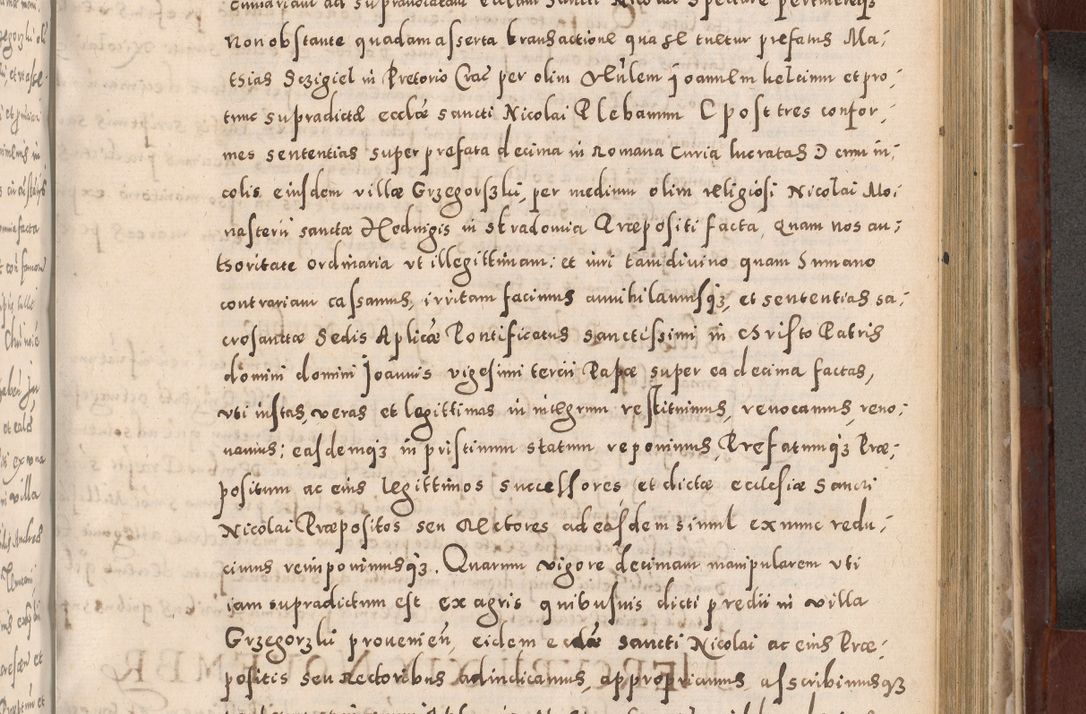 non obstante quadam asserta transactione qua fertur prefatus Ma-
thias Dczigiel in Pretorio Crac per olim Joannem helcinn et pro-
tunc supradictæ eccłæ sancti Nicolai Plebanum post tres confor-
mes sententias super prefata decima in Romana Curia lucratas cum in-
colis eiusdem villæ Grzegorzki, per medium olim religiosi Nicolai Mo-
nasterii sanctæ Hedwigis in stradomia Præpositi facta, Quam nos au-
thoritate ordinaria ut illegittimam: et iuri tam divino quam humano
contrariam cassamus, irritam facimus annihilamusqȝ, et sententias sa-
crosanctæ Sedis Aplicæ Pontificatus sanctissimi in Christo Patris
domini domini Joannis vigesimi tercii Papæ super ea decima factas,
uti iustas, veras et legittimas in integrum restituimus, revocamus, reno-
vamus; easdemqȝ in pristinum statum reponimus, Prefatumqȝ Præ-
positum ac eius legittimos successores, et dictæ ecclesiæ Sancti
Nicolai Præpositos seu Rectores ad easdem simul ex nunc redu-
cimus reimponimusqȝ. Quarum vigore decimam manipularem uti
iam supradictum est ex agris quibusvis dicti predii in villa
Grzegorzki provenien, eidem eccłæ sancti Nicolai ac eius Præ-
positis seu Rectoribus adiudicamus, appropriamus, asscribimusqȝ